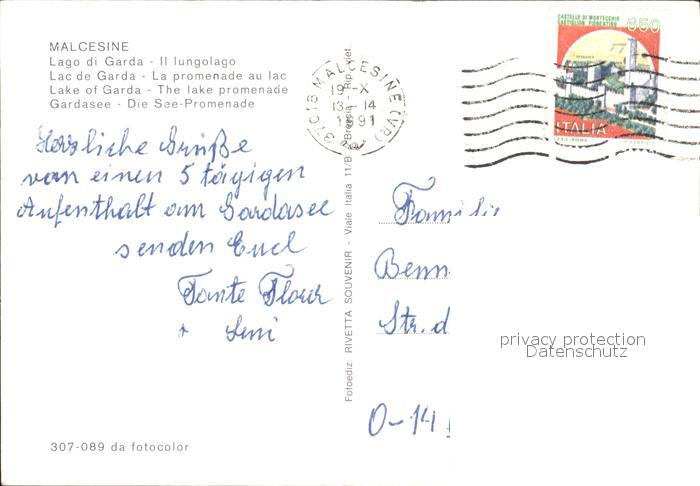 MALCESINE
Lago di Garda - Il lungolago
Lac de Garda - La promenade au lac
Lake of Garda - The lake promenade
Gardasee - Die See-Promenade
Herzliche Grüße
von einen 5 tägigen
Aufenthalt am Gardasee
senden Euch
Tante
+
307-089 da fotocolor
37018 MALCESINE (VR)
19-X
13-14
1991
Fotoediz. RIVETTA SOUVENIR - Viale Italia 11/B - Brescia - Rip. viet.
CASTELLO DI MONTECCHIO
CASTIGLION FIORENTINO
650
ITALIA
Familie
Benn
Str. d
O-14
privacy protection
Datenschutz